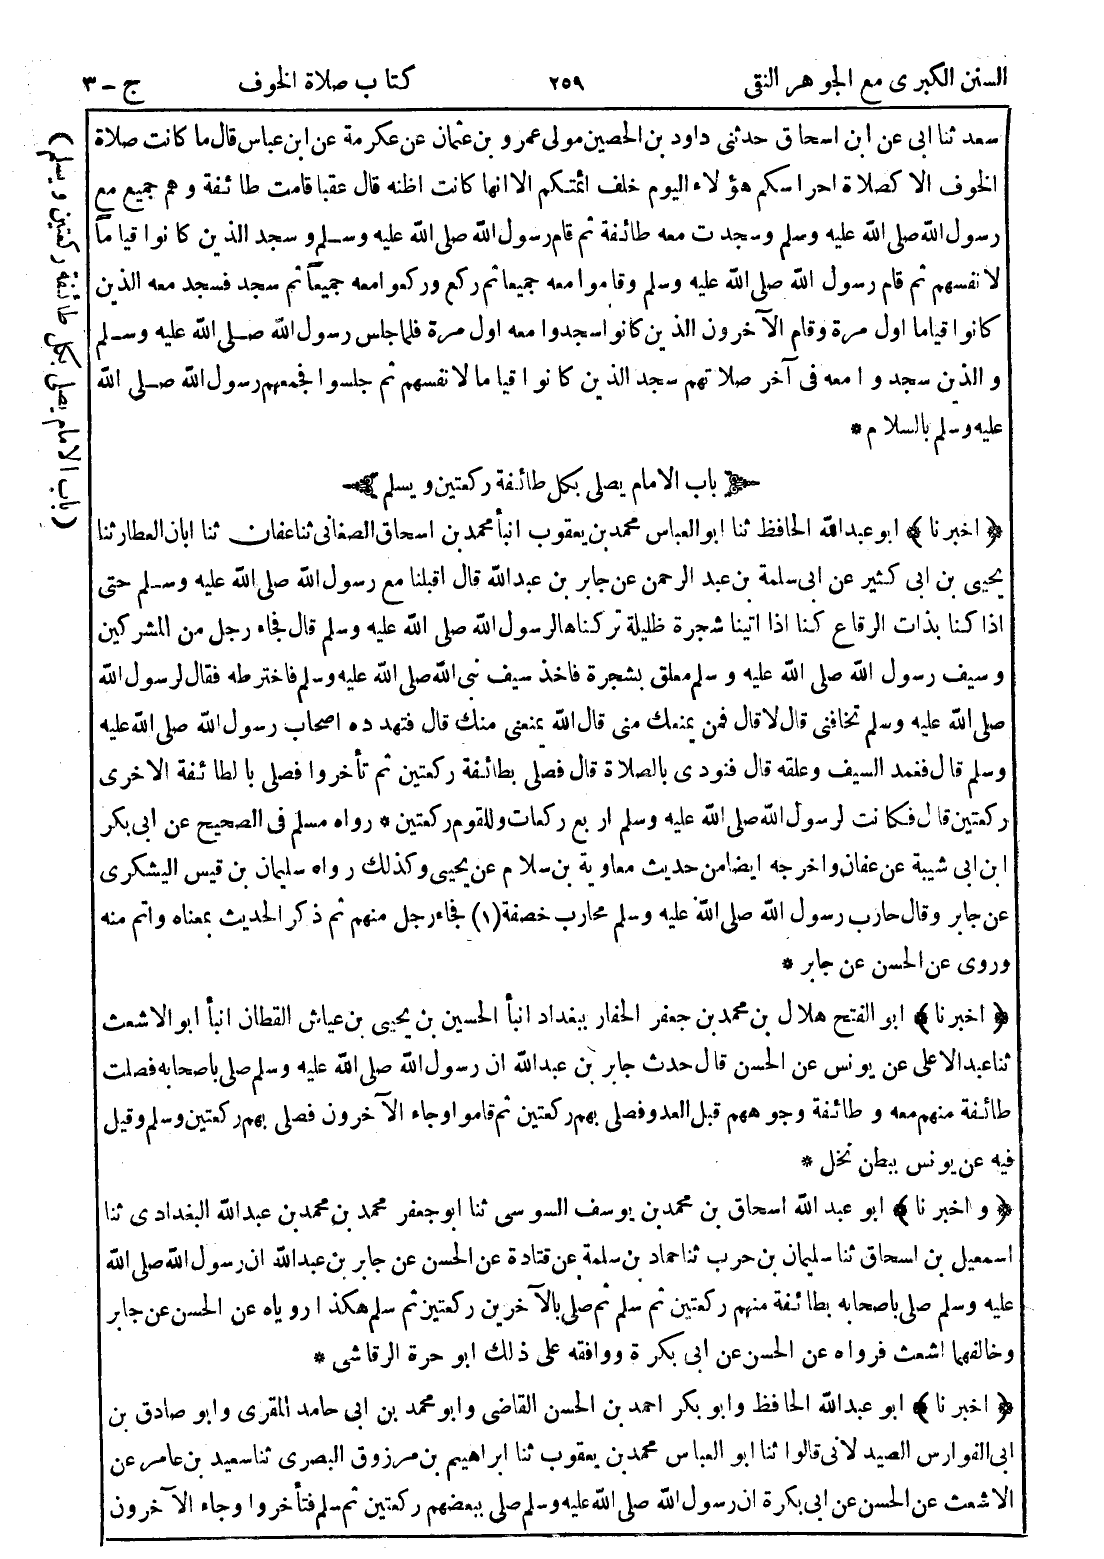 السنن الكبرى مع الجوهر النقى ٢٥٩ كتاب صلاة الخوف ج - ٣
سعد ثنا ابى عن ابن اسحاق حدثنى داود بن الحصين مولى عمرو بن عثمان عن عكرمة عن ابن عباس قال ما كانت صلاة
الخوف الا كصلاة احراسكم هؤلاء اليوم خلف ائمتكم الا انها كانت اظنه قال عقبا قامت طائفة وهم جميع مع
رسول الله صلى الله عليه وسلم وسجدت معه طائفة ثم قام رسول الله صلى الله عليه وسلم وسجد الذين كانوا قياماً
لانفسهم ثم قام رسول الله صلى الله عليه وسلم وقاموا معه جميعا ثم ركع وركعوا معه جميعاً ثم سجد فسجد معه الذين
كانوا قياما اول مرة وقام الآخرون الذين كانوا سجدوا معه اول مرة فلما جلس رسول الله صلى الله عليه وسلم
والذين سجدوا معه فى آخر صلاتهم سجد الذين كانوا قياما لانفسهم ثم جلسوا فجمعهم رسول الله صلى الله
عليه وسلم بالسلام *
باب الامام يصلى بكل طائفة ركعتين ويسلم
﴿ اخبرنا ﴾ ابو عبد الله الحافظ ثنا ابو العباس محمد بن يعقوب انبأ محمد بن اسحاق الصغانى ثنا عفان ثنا ابان العطار ثنا
يحيى بن ابى كثير عن ابى سلمة بن عبد الرحمن عن جابر بن عبد الله قال اقبلنا مع رسول الله صلى الله عليه وسلم حتى
اذا كنا بذات الرقاع كنا اذا اتينا شجرة ظليلة تركناها لرسول الله صلى الله عليه وسلم قال فجاء رجل من المشركين
وسيف رسول الله صلى الله عليه وسلم معلق بشجرة فاخذ سيف نبى الله صلى الله عليه وسلم فاخترطه فقال لرسول الله
صلى الله عليه وسلم تخافنى قال لا قال فمن يمنعك منى قال الله يمنعنى منك قال فتهدده اصحاب رسول الله صلى الله عليه
وسلم قال فغمد السيف وعلقه قال فنودى بالصلاة قال فصلى بطائفة ركعتين ثم تأخروا فصلى بالطائفة الاخرى
ركعتين قال فكانت لرسول الله صلى الله عليه وسلم اربع ركعات وللقوم ركعتين * رواه مسلم فى الصحيح عن ابى بكر
ابن ابى شيبة عن عفان واخرجه ايضا من حديث معاوية بن سلام عن يحيى وكذلك رواه سليمان بن قيس اليشكرى
عن جابر وقال حارب رسول الله صلى الله عليه وسلم محارب خصفة (١) فجاء رجل منهم ثم ذكر الحديث بمعناه واتم منه
وروى عن الحسن عن جابر *
﴿ اخبرنا ﴾ ابو الفتح هلال بن محمد بن جعفر الحفار ببغداد انبأ الحسين بن يحيى بن عياش القطان انبأ ابو الاشعث
ثنا عبد الاعلى عن يونس عن الحسن قال حدث جابر بن عبد الله ان رسول الله صلى الله عليه وسلم صلى باصحابه فصلت
طائفة منهم معه وطائفة وجوههم قبل العدو فصلى بهم ركعتين ثم قاموا وجاء الآخرون فصلى بهم ركعتين وسلم وقيل
فيه عن يونس ببطن نخل *
﴿ واخبرنا ﴾ ابو عبد الله اسحاق بن محمد بن يوسف السوسى ثنا ابو جعفر محمد بن محمد بن عبد الله البغدادى ثنا
اسمعيل بن اسحاق ثنا سليمان بن حرب ثنا حماد بن سلمة عن قتادة عن الحسن عن جابر بن عبد الله ان رسول الله صلى الله
عليه وسلم صلى باصحابه بطائفة منهم ركعتين ثم سلم ثم صلى بالآخرين ركعتين ثم سلم هكذا روياه عن الحسن عن جابر
وخالفهما اشعث فرواه عن الحسن عن ابى بكرة ووافقه على ذلك ابو حرة الرقاشى *
﴿ اخبرنا ﴾ ابو عبد الله الحافظ وابو بكر احمد بن الحسن القاضى وابو محمد بن ابى حامد المقرى وابو صادق بن
ابى الفوارس الصيدلانى قالوا ثنا ابو العباس محمد بن يعقوب ثنا ابراهيم بن مرزوق البصرى ثنا سعيد بن عامر عن
الاشعث عن الحسن عن ابى بكرة ان رسول الله صلى الله عليه وسلم صلى ببعضهم ركعتين ثم سلم فتأخروا وجاء الآخرون
(باب الامام يصلى بكل طائفة ركعتين ويسلم)